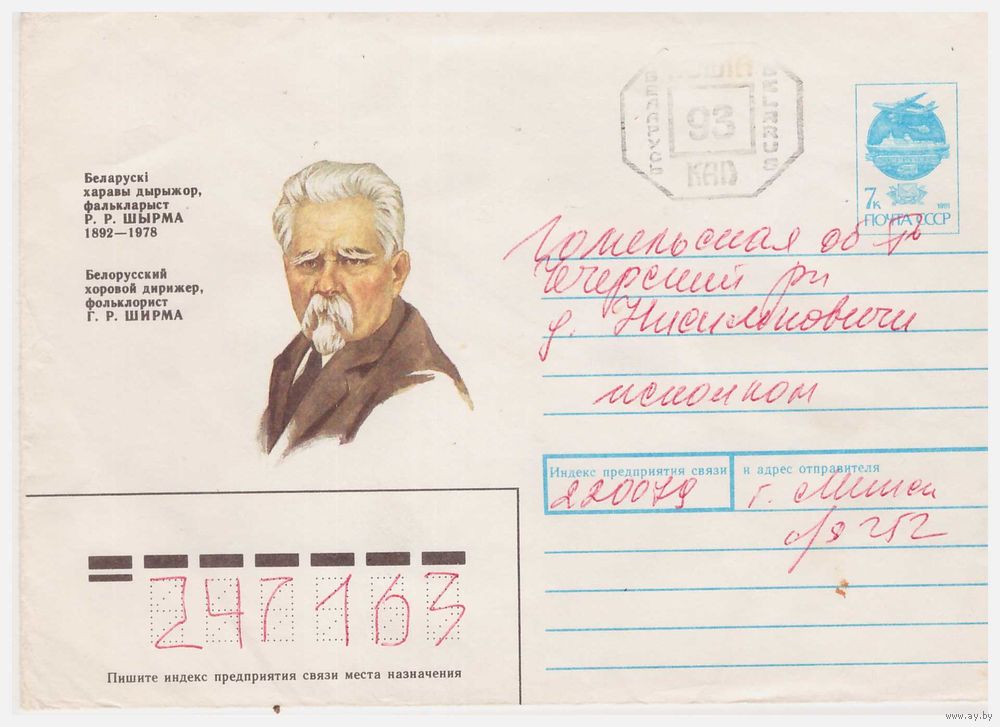 Беларускі
харавы дырыжор,
фалькларыст
Р. Р. ШЫРМА
1892—1978
Белорусский
хоровой дирижер,
фольклорист
Г. Р. ШИРМА
ПОШТА
БЕЛАРУСЬ
BELARUS
93
КАП
7к
1991
ПОЧТА СССР
Гомельская обл
Чечерский рн
д. Нисимковичи
исполком
Индекс предприятия связи и адрес отправителя
220079 г. Минск
а/я 252
247163
Пишите индекс предприятия связи места назначения
www.ay.by